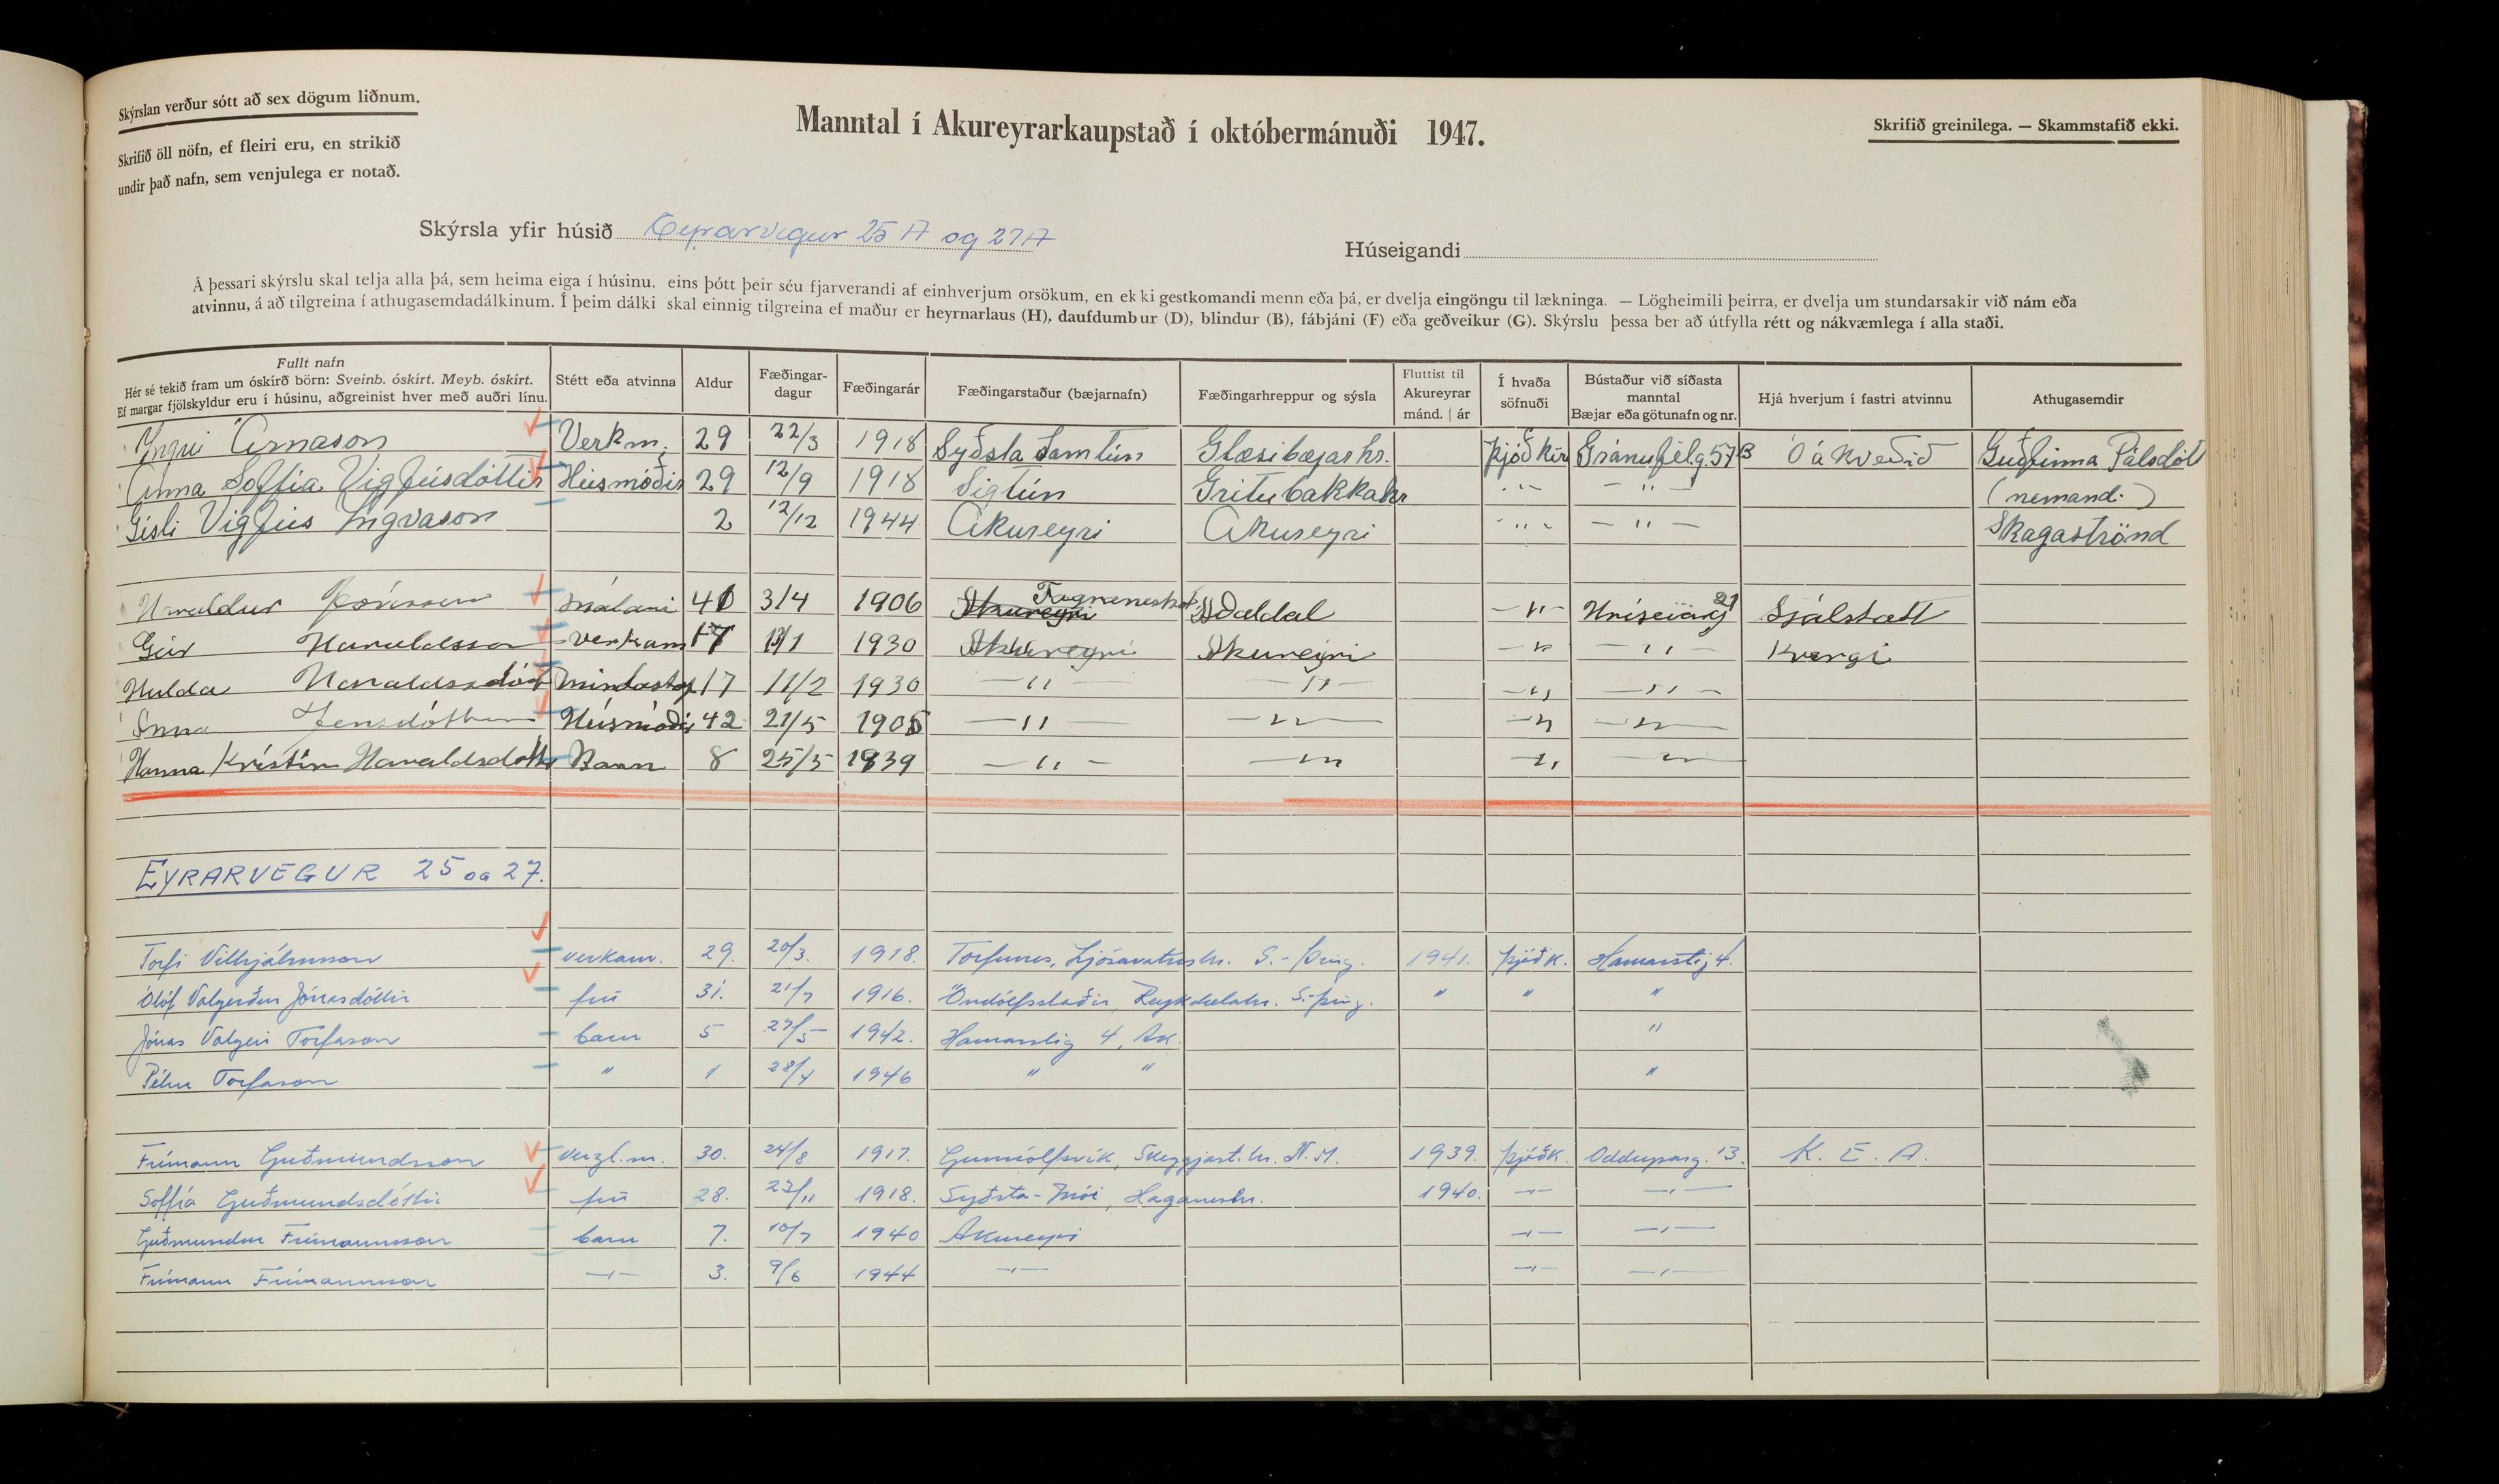 Skýrslan verður sótt að sex dögum liðnum.
Skrifið öll nöfn, ef fleiri eru, en strikið
undir það nafn, sem venjulega er notað.
Manntal í Akureyrarkaupstað í októbermánuði 1947.
Skrifið greinilega. — Skammstafið ekki.
Skýrsla yfir húsið Eyrarvegur 25 A og 27A
Húseigandi
Á þessari skýrslu skal telja alla þá, sem heima eiga í húsinu, eins þótt þeir séu fjarverandi af einhverjum orsökum, en ekki gestkomandi menn eða þá, er dvelja eingöngu til lækninga. — Lögheimili þeirra, er dvelja um stundarsakir við nám eða
atvinnu, á að tilgreina í athugasemdadálkinum. Í þeim dálki skal einnig tilgreina ef maður er heyrnarlaus (H), daufdumbur (D), blindur (B), fábjáni (F) eða geðveikur (G). Skýrslu þessa ber að útfylla rétt og nákvæmlega í alla staði.
Fullt nafn Hér sé tekið fram um óskírð börn: Sveinb. óskírt. Meyb. óskírt. Ef margar fjölskyldur eru í húsinu, aðgreinist hver með auðri línu. Stétt eða atvinna Aldur Fæðingar-dagur Fæðingarár Fæðingarstaður (bæjarnafn) Fæðingarhreppur og sýsla Fluttist til Akureyrar mánd. | ár Í hvaða söfnuði Bústaður við síðasta manntal Bæjar eða götunafn og nr. Hjá hverjum í fastri atvinnu Athugasemdir
Yngvi Árnason Verkm. 29 22/3 1918 Syðsta Samtún Glæsibæjarhr. Þjóðkir Gránufélg. 57B Óákveðið Guðfinna Pálsdót
Anna Soffía Vigfúsdóttir Húsmóðir 29 12/9 1918 Sigtún Grítubakkahr — " — — " — (nemand.)
Gísli Vigfús Yngvason 2 12/12 1944 Akureyri Akureyri — " — — " — Skagaströnd
Haraldur Jónsson málari 41 3/4 1906 Akureyri Aðaldal — " — Hríseiarg 21 Sjálstætt
Geir Haraldsson verkam 17 1930 Akureyri Akureyri — " — — " — Hvergi
Hulda Haraldsdót 17 11/2 1930 — " — — " — — " — — " —
Anna Jensdóttir Húsmóðir 42 21/5 1905 — " — — " — — " — — " —
Hanna Kristín Haraldsdóttir Barn 8 25/5 1939 — " — — " — — " — — " —
EYRARVEGUR 25 og 27.
Torfi Vilhjálmsson verkam. 29. 20/3. 1918. Torfunes, Ljósavatnshr. S.-Þing. 1941. Þjóðk. Hamarstíg 4.
Ólöf Valgerður Jónasdóttir frú 31. 21/7 1916. Öndólfsstaðir, Reykdælahr. S.-Þing. " " "
Jónas Valgeir Torfason barn 5 27/5 1942. Hamarstíg 4, Ak. "
Pétur Torfason " 1 28/4 1946 " " "
Frímann Guðmundsson verzl.m. 30. 24/8 1917. Gunnólfsvík, Skeggjast.hr. N.M. 1939. Þjóðk. Oddeyrarg. 13. K. E. A.
Soffía Guðmundsdóttir frú 28. 23/11 1918. Syðsta-Mói, Haganeshr. 1940. —"— —"—
Guðmundur Frímannsson barn 7. 10/7 1940 Akureyri —"— —"—
Frímann Frímannsson —"— 3. 9/6 1944 —"— —"— —"—